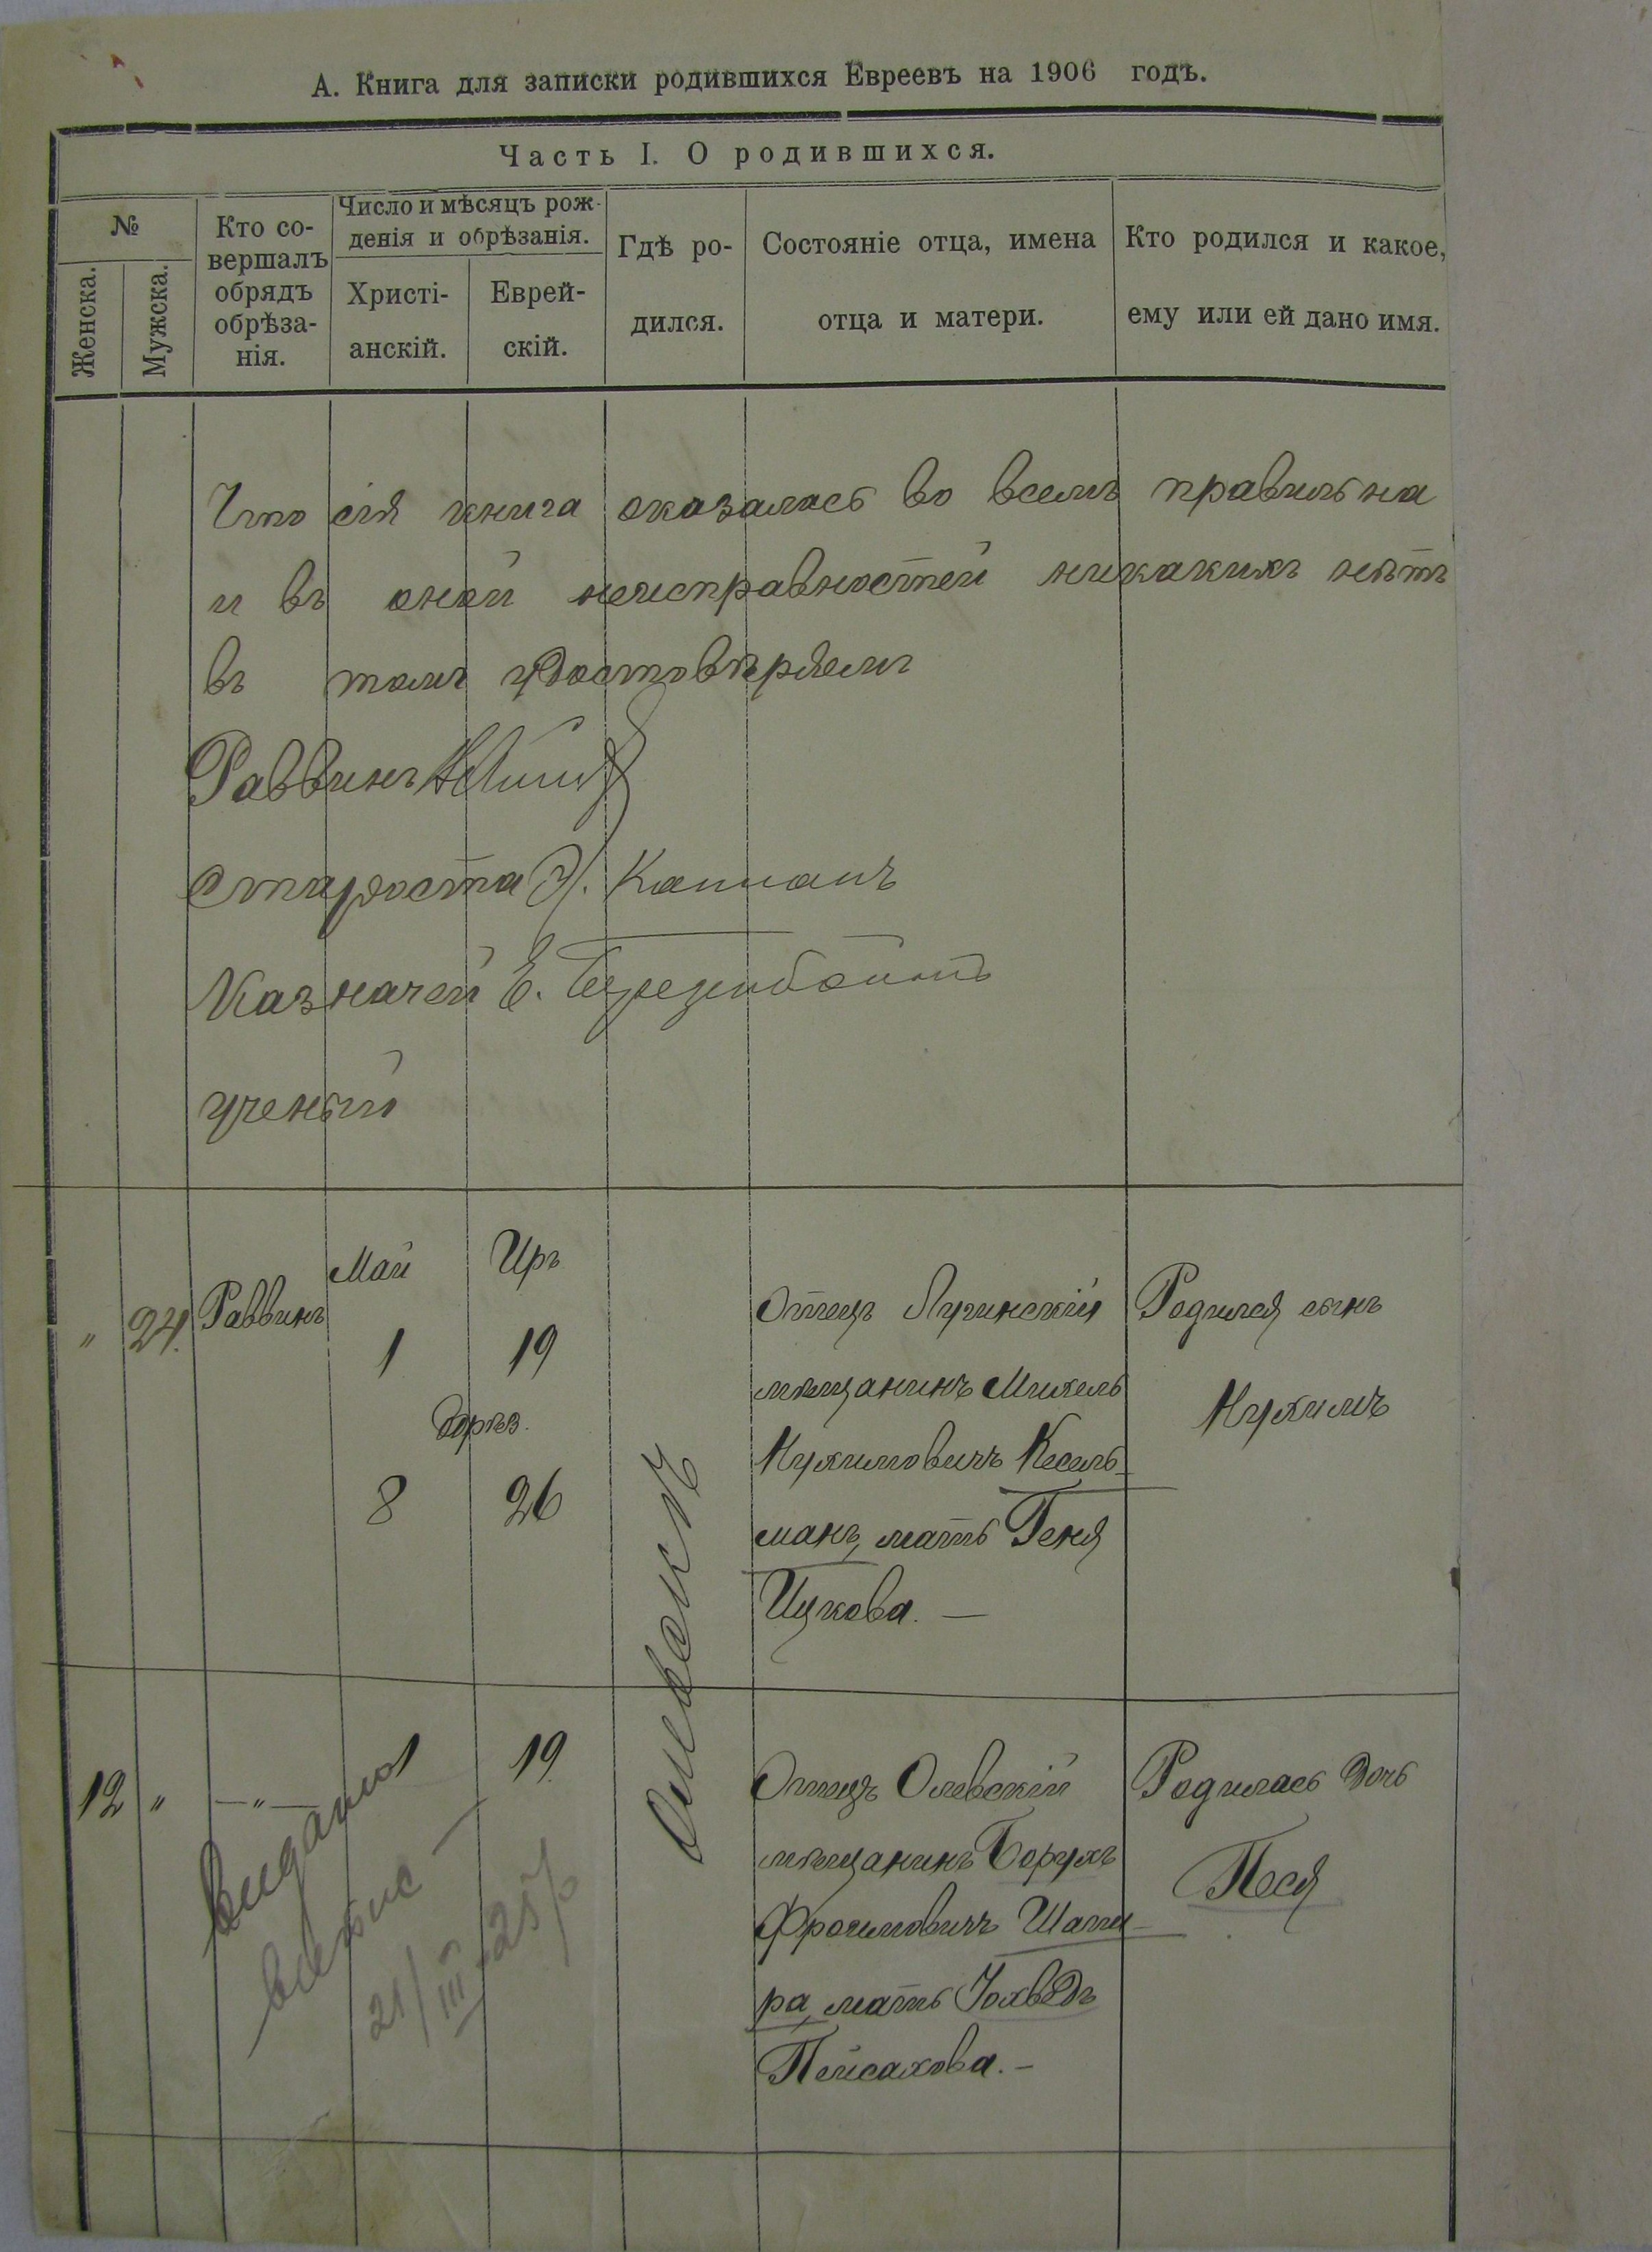 А. Книга для записки родившихся Евреевъ на 1906 годъ.
Часть I. О родившихся.
№
Женска.
Мужска.
Кто со-
вершалъ
обрядъ
обрѣза-
нія.
Число и мѣсяцъ рож-
денія и обрѣзанія.
Христі-
анскій.
Еврей-
скій.
Гдѣ ро-
дился.
Состояніе отца, имена
отца и матери.
Кто родился и какое,
ему или ей дано имя.
Что сія книга оказалась во всемъ правильна
и въ оной неисправностей никакихъ нѣтъ
въ томъ удостовѣряемъ
Раввинъ
Староста Каплапъ
Казначей Е.
ученый
" 24. Раввинъ
Май Иръ
1 19
обрѣз.
8 26
Отецъ Лугинскій
мѣщанинъ Михель
Нухимовичъ Кесель-
манъ, мать Геня
Ицкова. —
Родился сынъ
Нухимъ
12 " —"— 1 19
Отецъ Олевскій
мѣщанинъ Борухъ
Фроимовичъ Шапи-
ра, мать Йохведъ
Пейсахова. —
Родилась дочь
Песя
видано
21/III-25